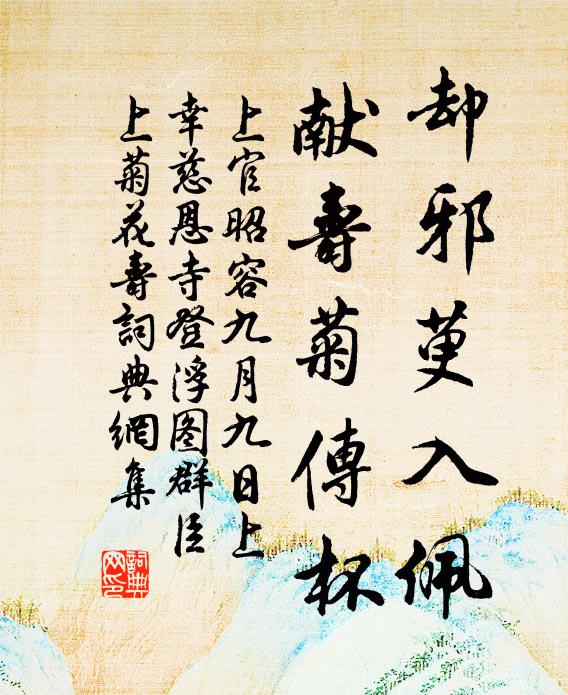 却邪萸入佩
献壽菊傳杯
上官昭容九月九日上
幸慈恩寺登浮图群臣
上菊花壽詞典網集
詞典網印